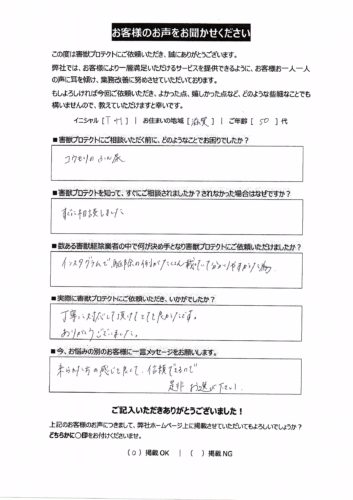 お客様のお声をお聞かせください
この度は害獣プロテクトにご依頼いただき、誠にありがとうございます。
弊社では、お客様により一層満足いただけるサービスを提供できるように、お客様お一人一人
の声に耳を傾け、業務改善に努めさせていただいております。
もしよろしければ今回ご依頼いただき、よかった点、嬉しかった点など、どのような些細なことでも
構いませんので、教えていただけますと幸いです。
イニシャル [T.M] | お住まいの地域 [滋賀] | ご年齢 [50] 代
■害獣プロテクトにご相談いただく前に、どのようなことでお困りでしたか?
コウモリのふん尿
■害獣プロテクトを知って、すぐにご相談されましたか?されなかった場合はなぜですか?
すぐに相談しました
■数ある害獣駆除業者の中で何が決め手となり害獣プロテクトにご依頼いただけましたか?
インスタグラムで駆除の例がたくさん載っていて分かりやすかった為
■実際に害獣プロテクトにご依頼いただき、いかがでしたか?
丁寧に対応して頂けてとても良かったです。
ありがとうございました。
■今、お悩みの別のお客様に一言メッセージをお願いします。
来られた方の感じも良くて、信頼できるので
是非お選び下さい!
ご記入いただきありがとうございました!
上記のお客様のお声につきまして、弊社ホームページ上に掲載させていただいてもよろしいでしょうか?
どちらかに〇印をお付けくださいませ。
(○) 掲載OK | ( ) 掲載NG